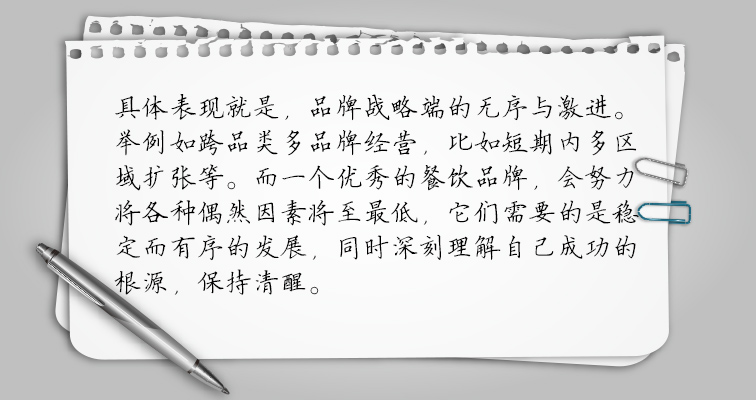 具体表现就是，品牌战略端的无序与激进。
举例如跨品类多品牌经营，比如短期内多区
域扩张等。而一个优秀的餐饮品牌，会努力
将各种偶然因素将至最低，它们需要的是稳
定而有序的发展，同时深刻理解自己成功的
根源，保持清醒。